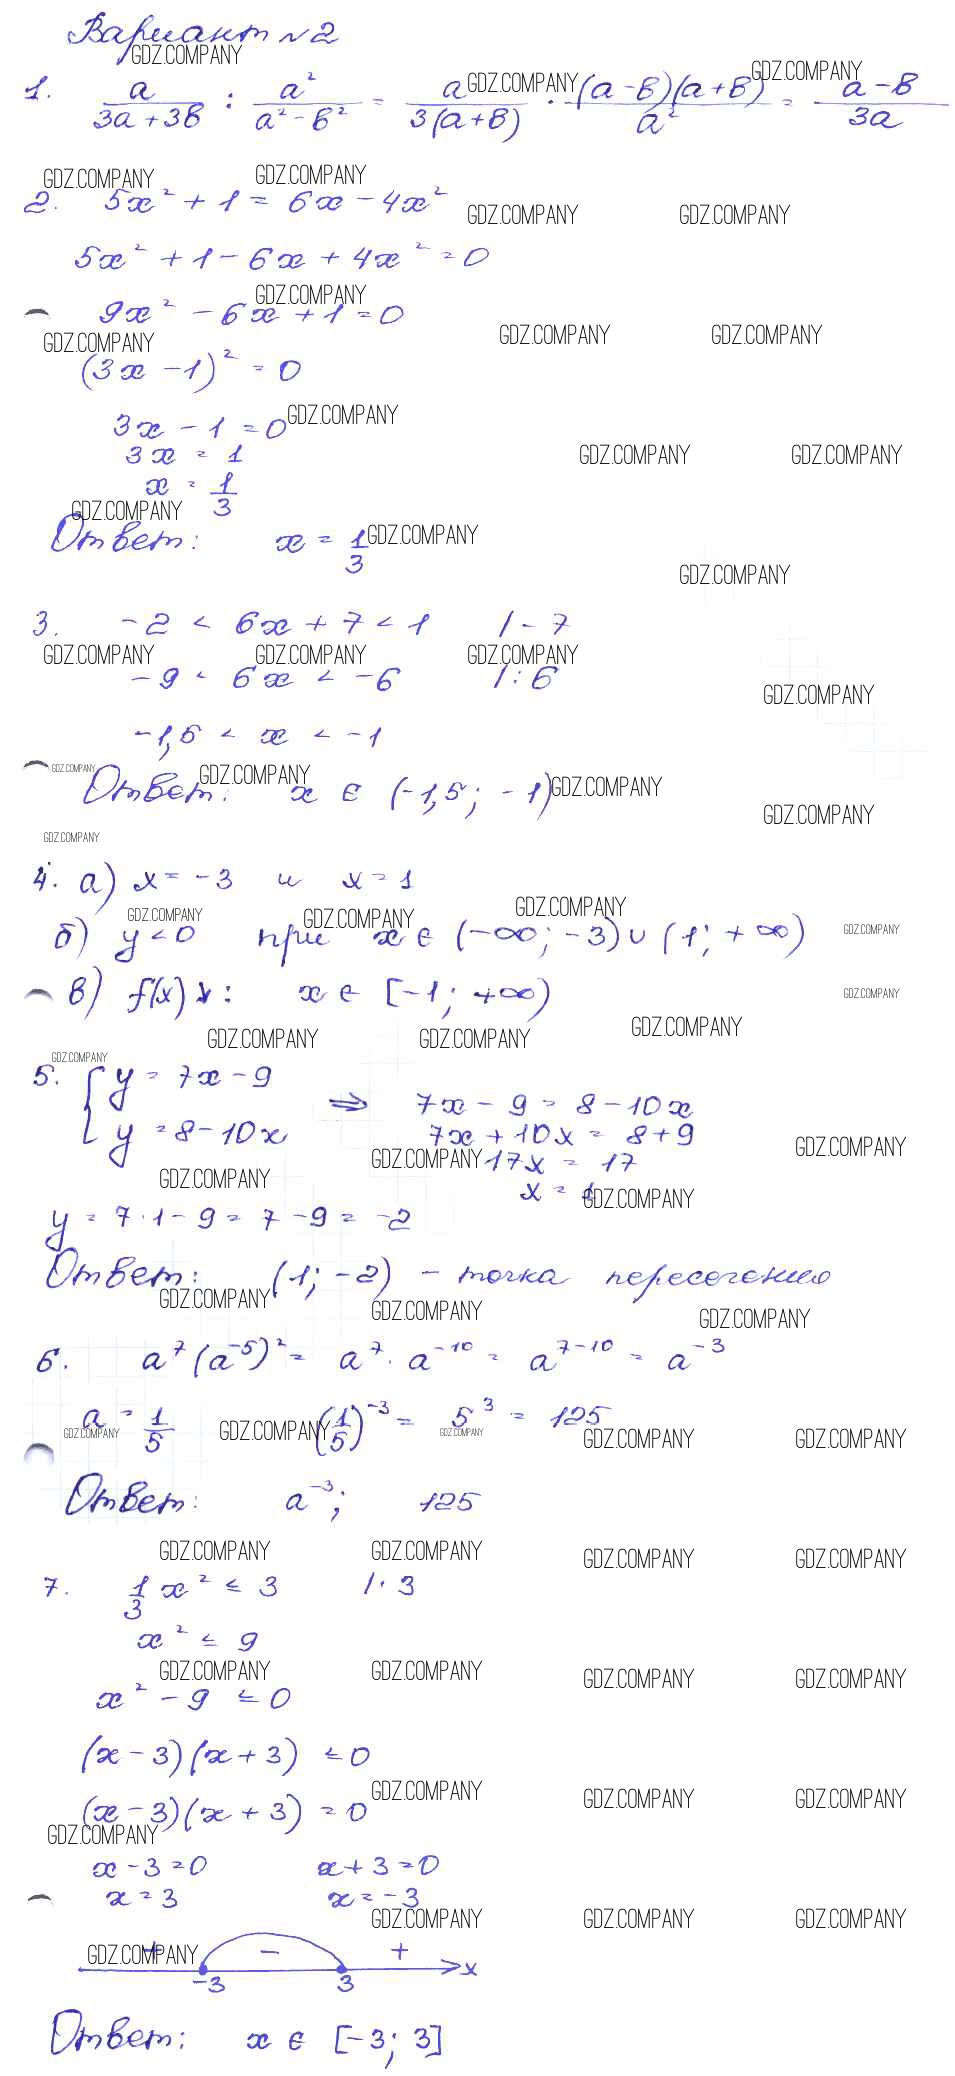 Вариант №2
1. a/(3a+3в) : a²/(a²-в²) = a/(3(a+в)) · (a-в)(a+в)/a² = (a-в)/3a
2. 5x²+1=6x-4x²
5x²+1-6x+4x²=0
9x²-6x+1=0
(3x-1)²=0
3x-1=0
3x=1
x=1/3
Ответ: x=1/3
3. -2<6x+7<1 |-7
-9<6x<-6 |:6
-1,5<x<-1
Ответ: x∈(-1,5; -1)
4. а) x=-3 и x=1
б) y<0 при x∈(-∞;-3)∪(1;+∞)
в) f(x)↘: x∈[-1;+∞)
5. { y=7x-9
y=8-10x
⇒ 7x-9=8-10x
7x+10x=8+9
17x=17
x=1
y=7·1-9=7-9=-2
Ответ: (1;-2) - точка пересечения
6. a⁷(a⁻⁵)²= a⁷·a⁻¹⁰=a⁷⁻¹⁰=a⁻³
a=1/5 (1/5)⁻³=5³=125
Ответ: a⁻³; 125
7. 1/3x²≤3 |·3
x²≤9
x²-9≤0
(x-3)(x+3)≤0
(x-3)(x+3)=0
x-3=0 x+3=0
x=3 x=-3
+ - + x
-3 3
Ответ: x∈[-3; 3]
GDZ.COMPANY